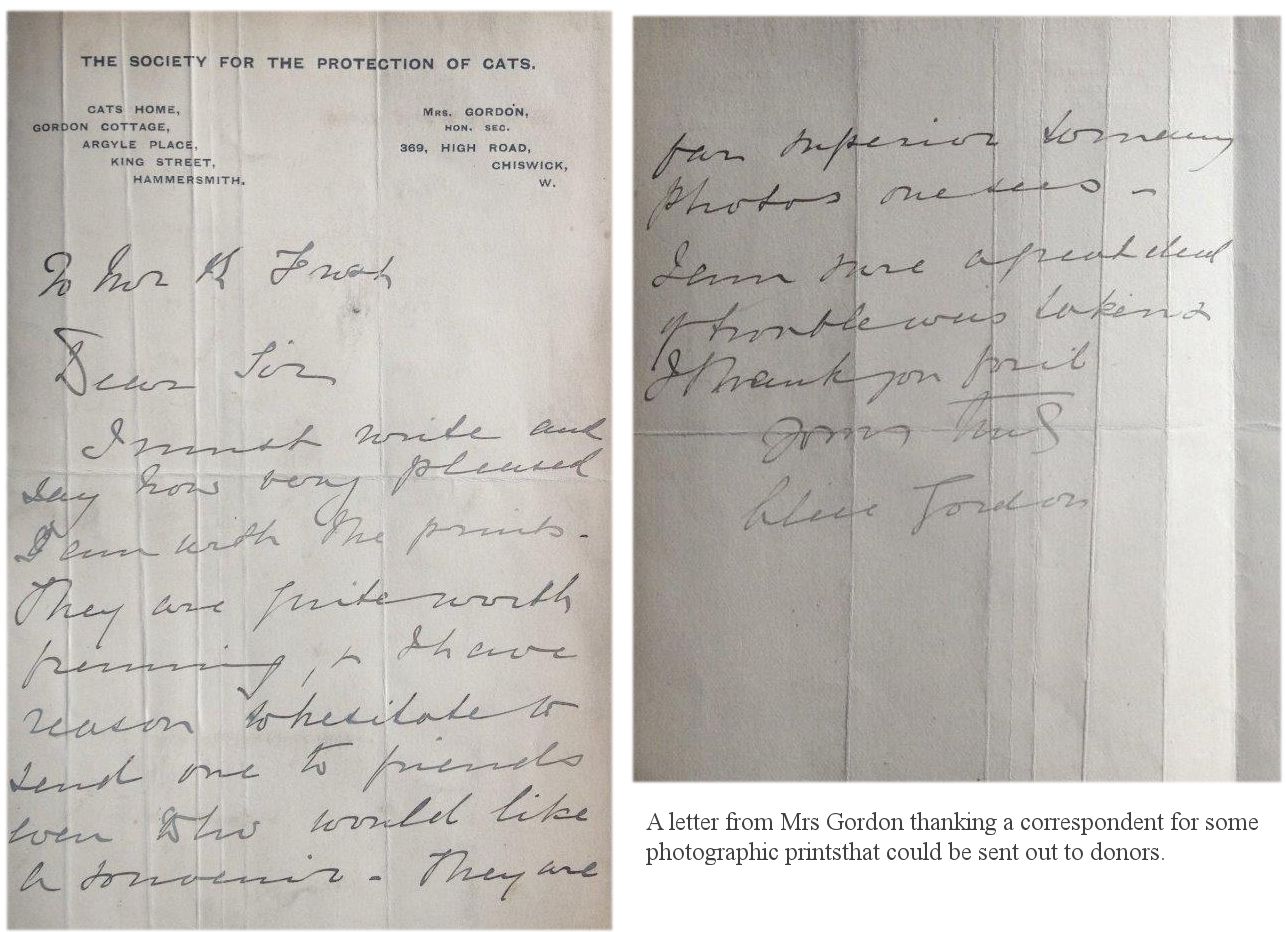 THE SOCIETY FOR THE PROTECTION OF CATS.
CATS HOME,
GORDON COTTAGE,
ARGYLE PLACE,
KING STREET,
HAMMERSMITH.
MRS. GORDON,
HON. SEC.
369, HIGH ROAD,
CHISWICK,
W.
To
Dear Sir
I must write and
say how very pleased
I am with the prints-
They are quite worth
framing, & I have
reason to hesitate to
send one to friends
even who would like
a souvenir - They are
far superior to many
photos one sees -
I am sure a great deal
of trouble was taken &
I thank you for it
Yours
Gordon
A letter from Mrs Gordon thanking a correspondent for some
photographic printsthat could be sent out to donors.